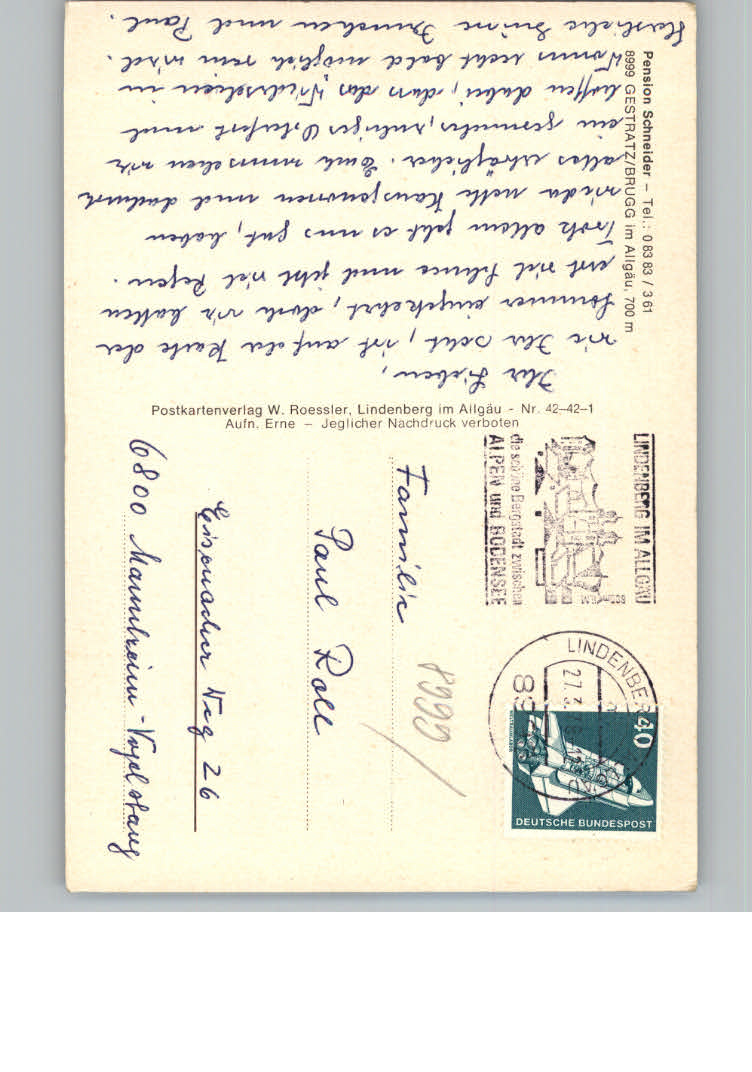 Pension Schneider – Tel.: 0 83 83 / 3 61
8999 GESTRATZ/BRUGG im Allgäu, 700 m
Ihr Lieben,
wie Ihr seht, ist auf der Karte der
Sommer eingekehrt, doch wir hatten
erst viel Schnee und jetzt viel Regen.
Trotz allem geht es uns gut, haben
wieder nette Hausgenossen und dadurch
alles erträglicher. Euch wünschen wir
ein gesundes, ruhiges Osterfest und
hoffen dabei, dass das Wiedersehen in
Worms recht bald möglich sein wird.
Herzliche Grüsse und Paul.
Postkartenverlag W. Roessler, Lindenberg im Allgäu - Nr. 42–42–1
Aufn. Erne – Jeglicher Nachdruck verboten
LINDENBERG IM ALLGÄU
800m ü.M.
die schöne Bergstadt zwischen
ALPEN und BODENSEE
LINDENBERG
40
DEUTSCHE BUNDESPOST
8999
Familie
Paul Roll
Eisenacher Weg 26
6800 Mannheim-Vogelstang